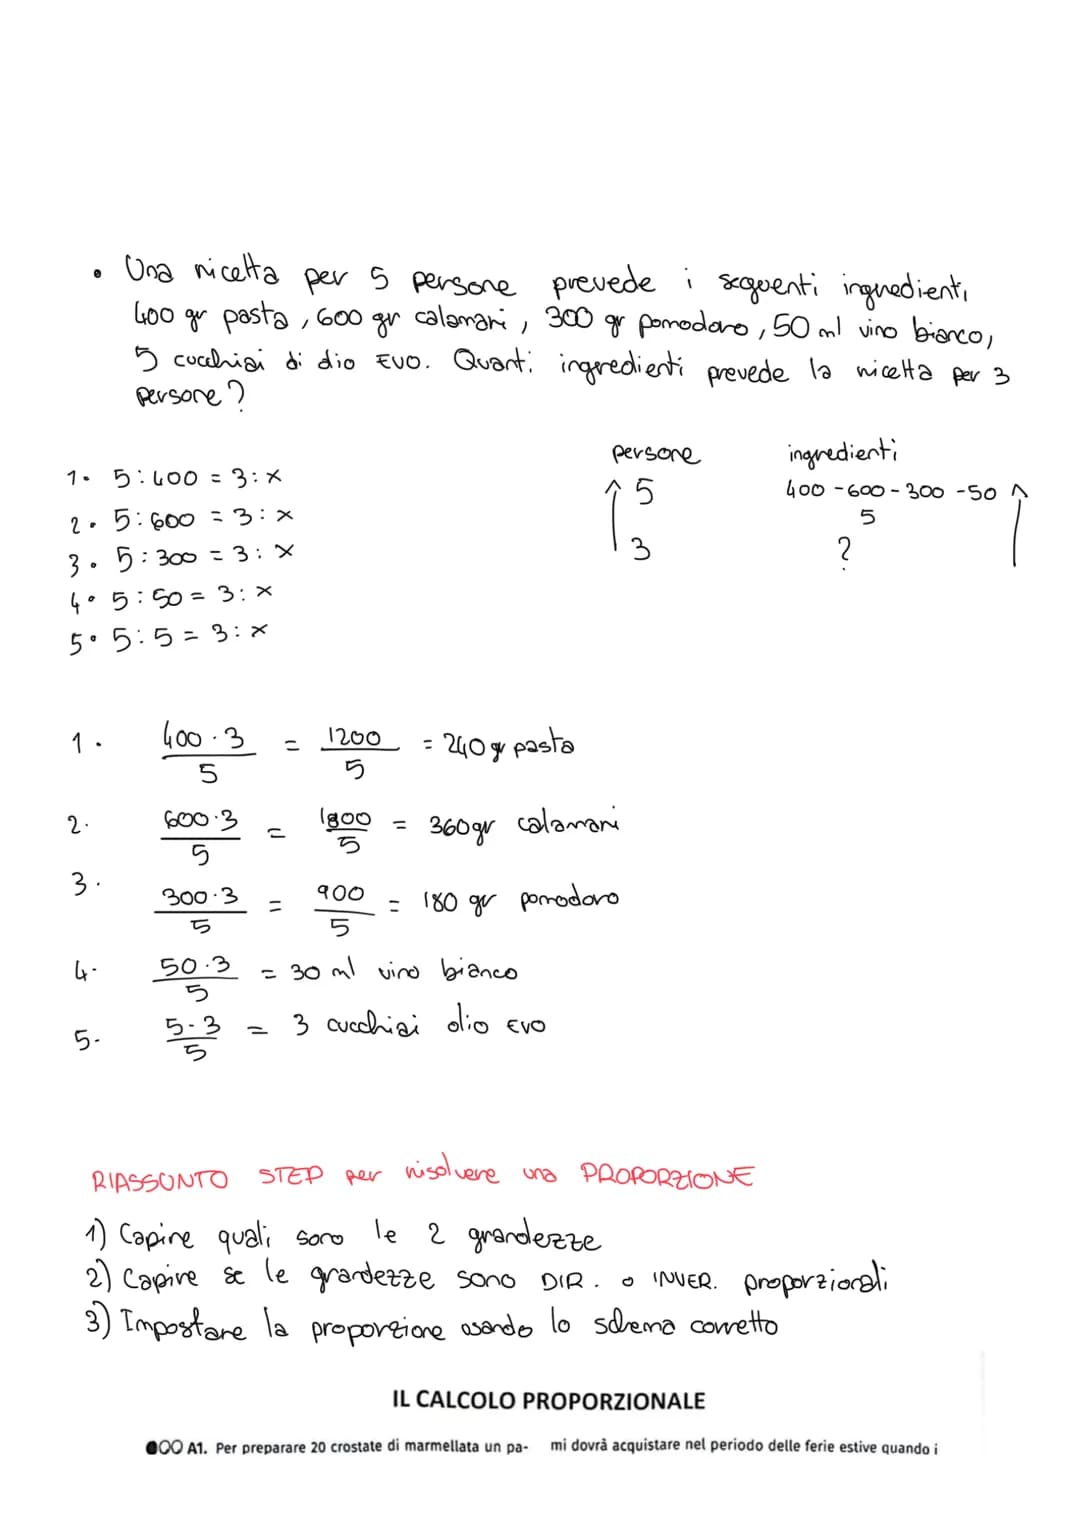 • Una ricetta per 5 persone prevede i seguenti ingredienti
400 gr pasta, 600 gr calamari, 300 gr pomodoro, 50 ml vino bianco,
5 cucchiai di olio EVO. Quanti ingredienti prevede la ricetta per 3
persone?
persone ingredienti
5 400 - 600 - 300 - 50
5
3 ?
1. 5:400 = 3:x
2. 5:600 = 3:x
3. 5:300 = 3:x
4. 5:50 = 3:x
5. 5:5 = 3:x
1. 400·3/5 = 1200/5 = 240 gr pasta
2. 600·3/5 = 1800/5 = 360 gr calamari
3. 300·3/5 = 900/5 = 180 gr pomodoro
4. 50·3/5 = 30 ml vino bianco
5. 5·3/5 = 3 cucchiai olio EVO
RIASSUNTO STEP per risolvere una PROPORZIONE
1) Capire quali sono le 2 grandezze
2) Capire se le grandezze sono DIR. o INVER. proporzionali
3) Impostare la proporzione usando lo schema corretto
IL CALCOLO PROPORZIONALE
A1. Per preparare 20 crostate di marmellata un pa-
mi dovrà acquistare nel periodo delle ferie estive quando i